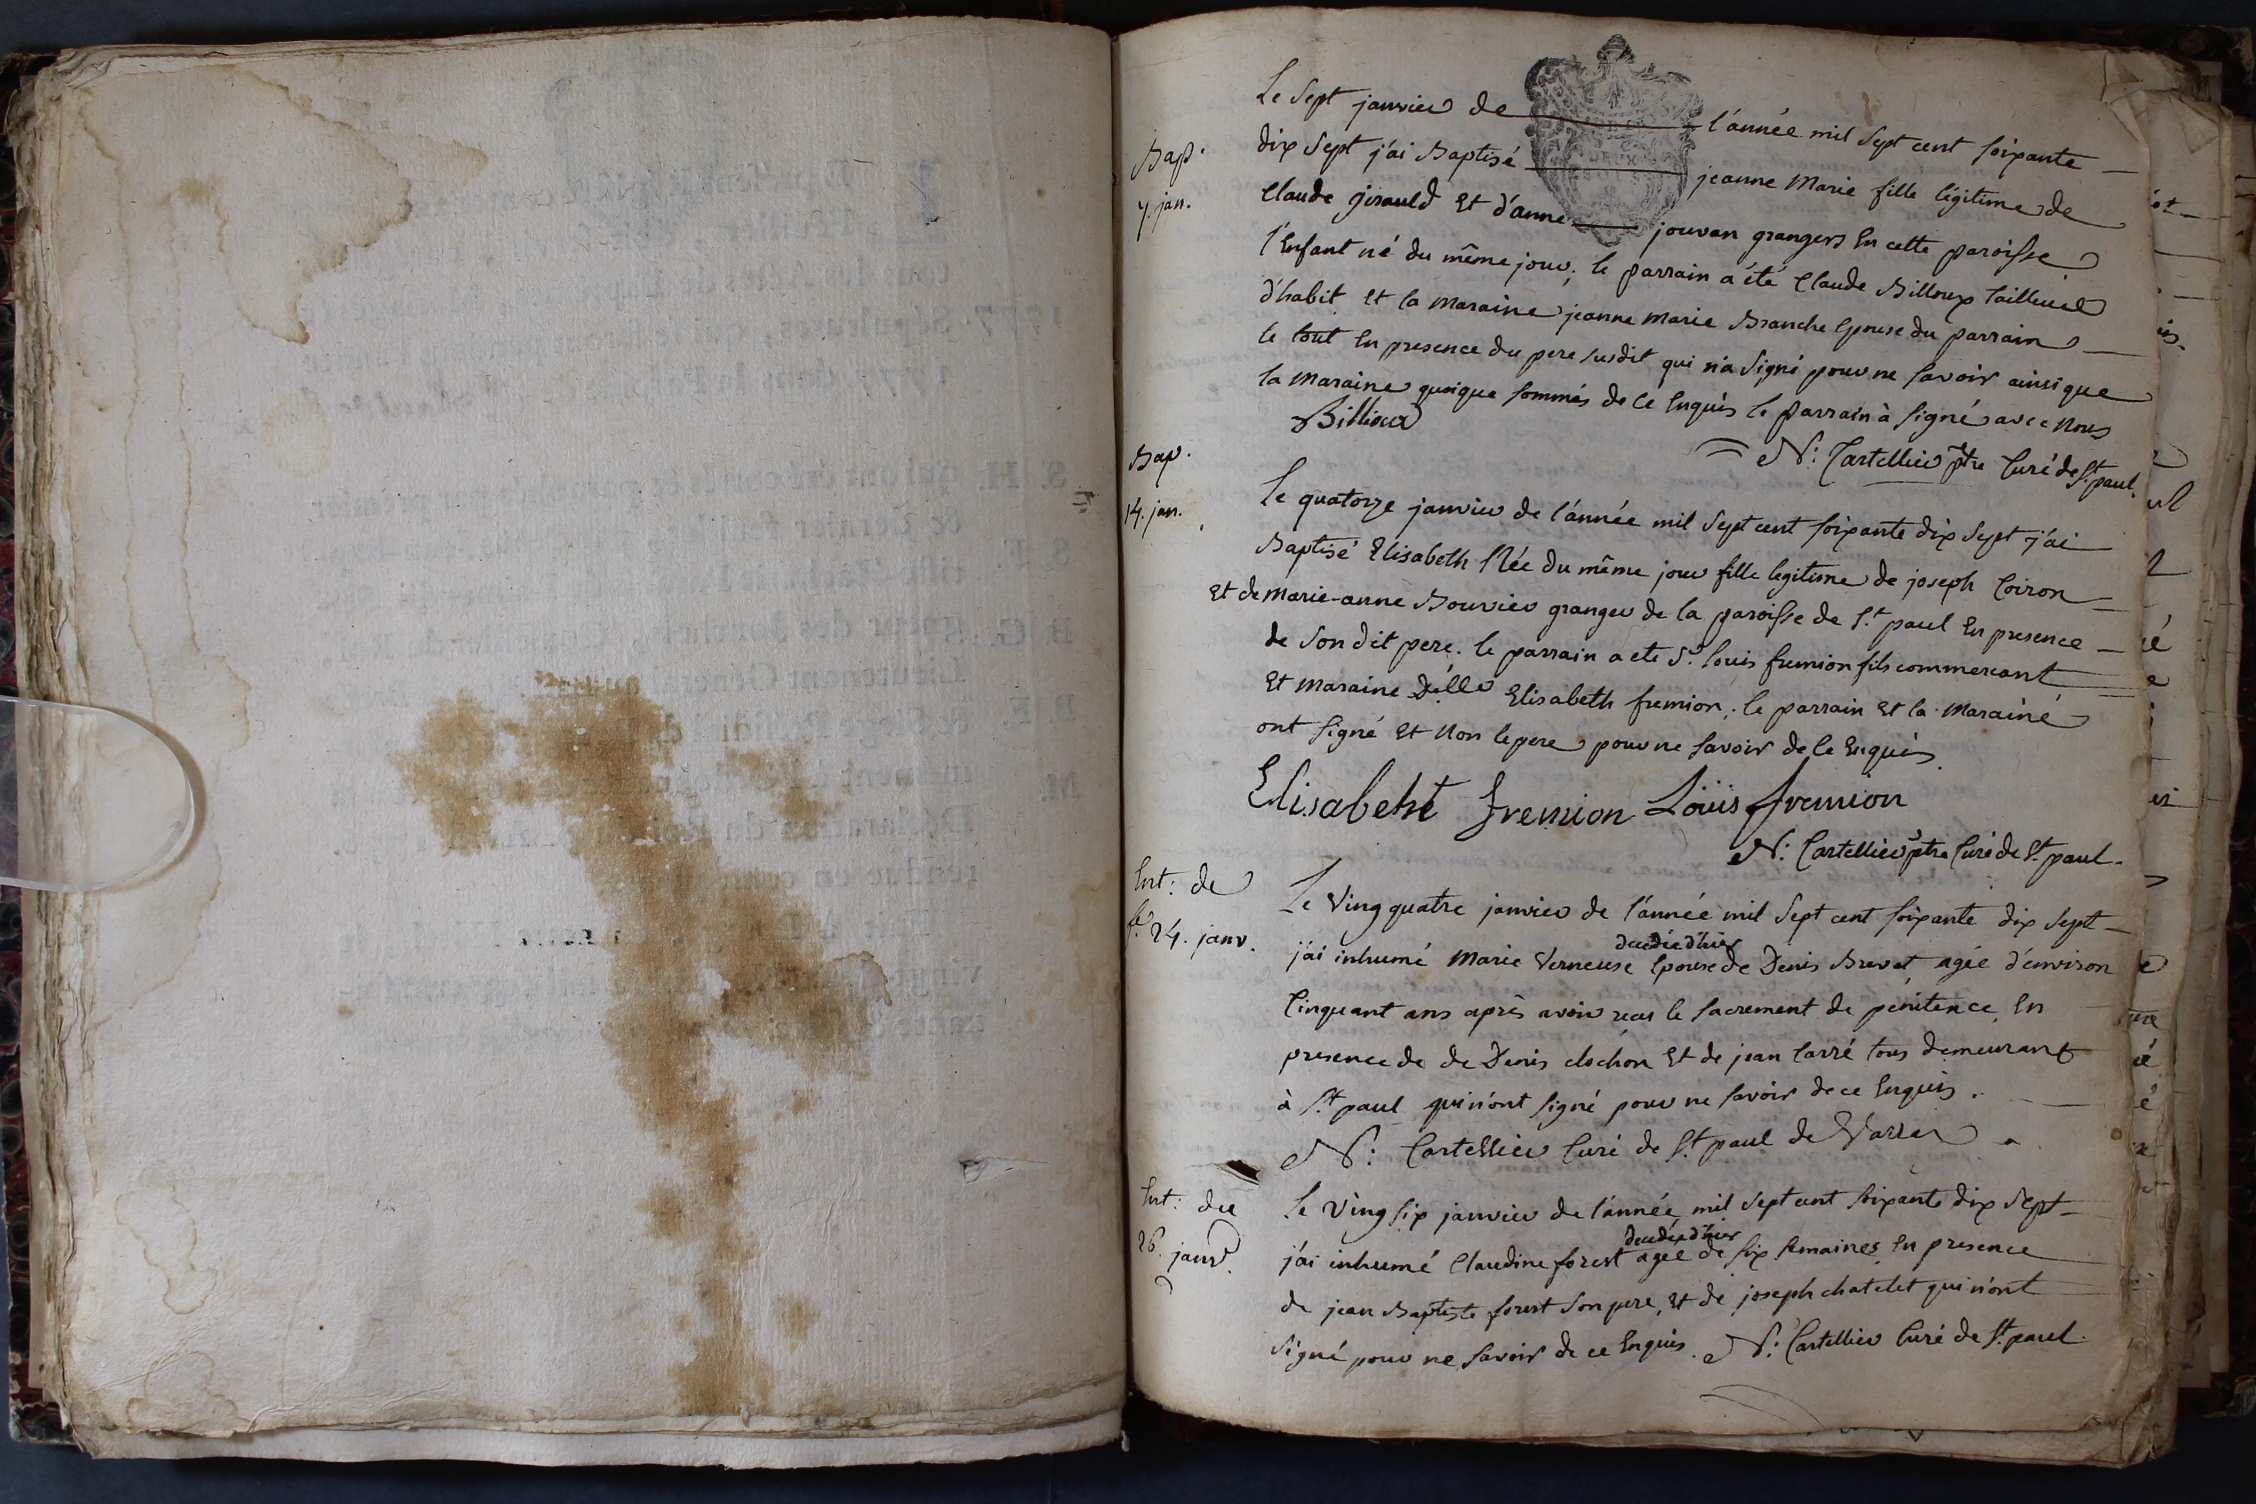 Bap.
7. jan.
Le Sept janvier de l'année mil Sept cent soixante
dix Sept j'ai Baptisé jeanne Marie fille légitime de
Claude Girauld Et d'anne jouvan grangers En cette paroisse
l'Enfant né du même jour; le parrain a été Claude Billoux tailleur
d'habit Et la maraine jeanne marie Branche Epouse du parrain
le tout En presence du pere susdit qui n'a Signé pour ne savoir ainsi que
la maraine quoique sommés de ce Enquis le parrain à signé avec nous
Billioux
N: Cartellier ptre Curé de St paul.
Bap.
14. jan.
le quatorze janvier de l'année mil Sept cent soixante dix Sept j'ai
Baptisé Elisabeth Née du même jour fille legitime de joseph Coiron
Et de marie-anne Bouvier granger de la paroisse de St paul En presence
de Son dit pere. le parrain a ete Sr. louis fremion fils commercant
Et maraine Dlle Elisabeth fremion; le parrain Et la Maraine
ont signé Et Non le pere pour ne savoir de ce Enquis.
Elisabeht fremion Loüis fremion
N: Cartellier ptre Curé de St paul.
Ent: de
24. janv.
Le Vingquatre janvier de l'année mil Sept cent soixante dix Sept
decedée d'hier
j'ai inhumé Marie Verneuse Epouse de Denis Brevet agée d'environ
Cinquant ans après avoir recu le sacrement de pénitence En
presence de de Denis clochon Et de jean Carré tous demeurant
à St paul qui n'ont signé pour ne savoir de ce Enquis.
N: Cartellier Curé de St paul de Varax
Ent: du
26. janv.
le Vingsix janvier de l'année mil Sept cent soixante dix Sept
decedée d'hier
j'ai inhumé Claudine forest agée de six semaines En presence
de jean Baptiste forest Son pere, Et de joseph chatelet qui n'ont
Signé pour ne savoir de ce Enquis. N: Cartellier Curé de St paul.